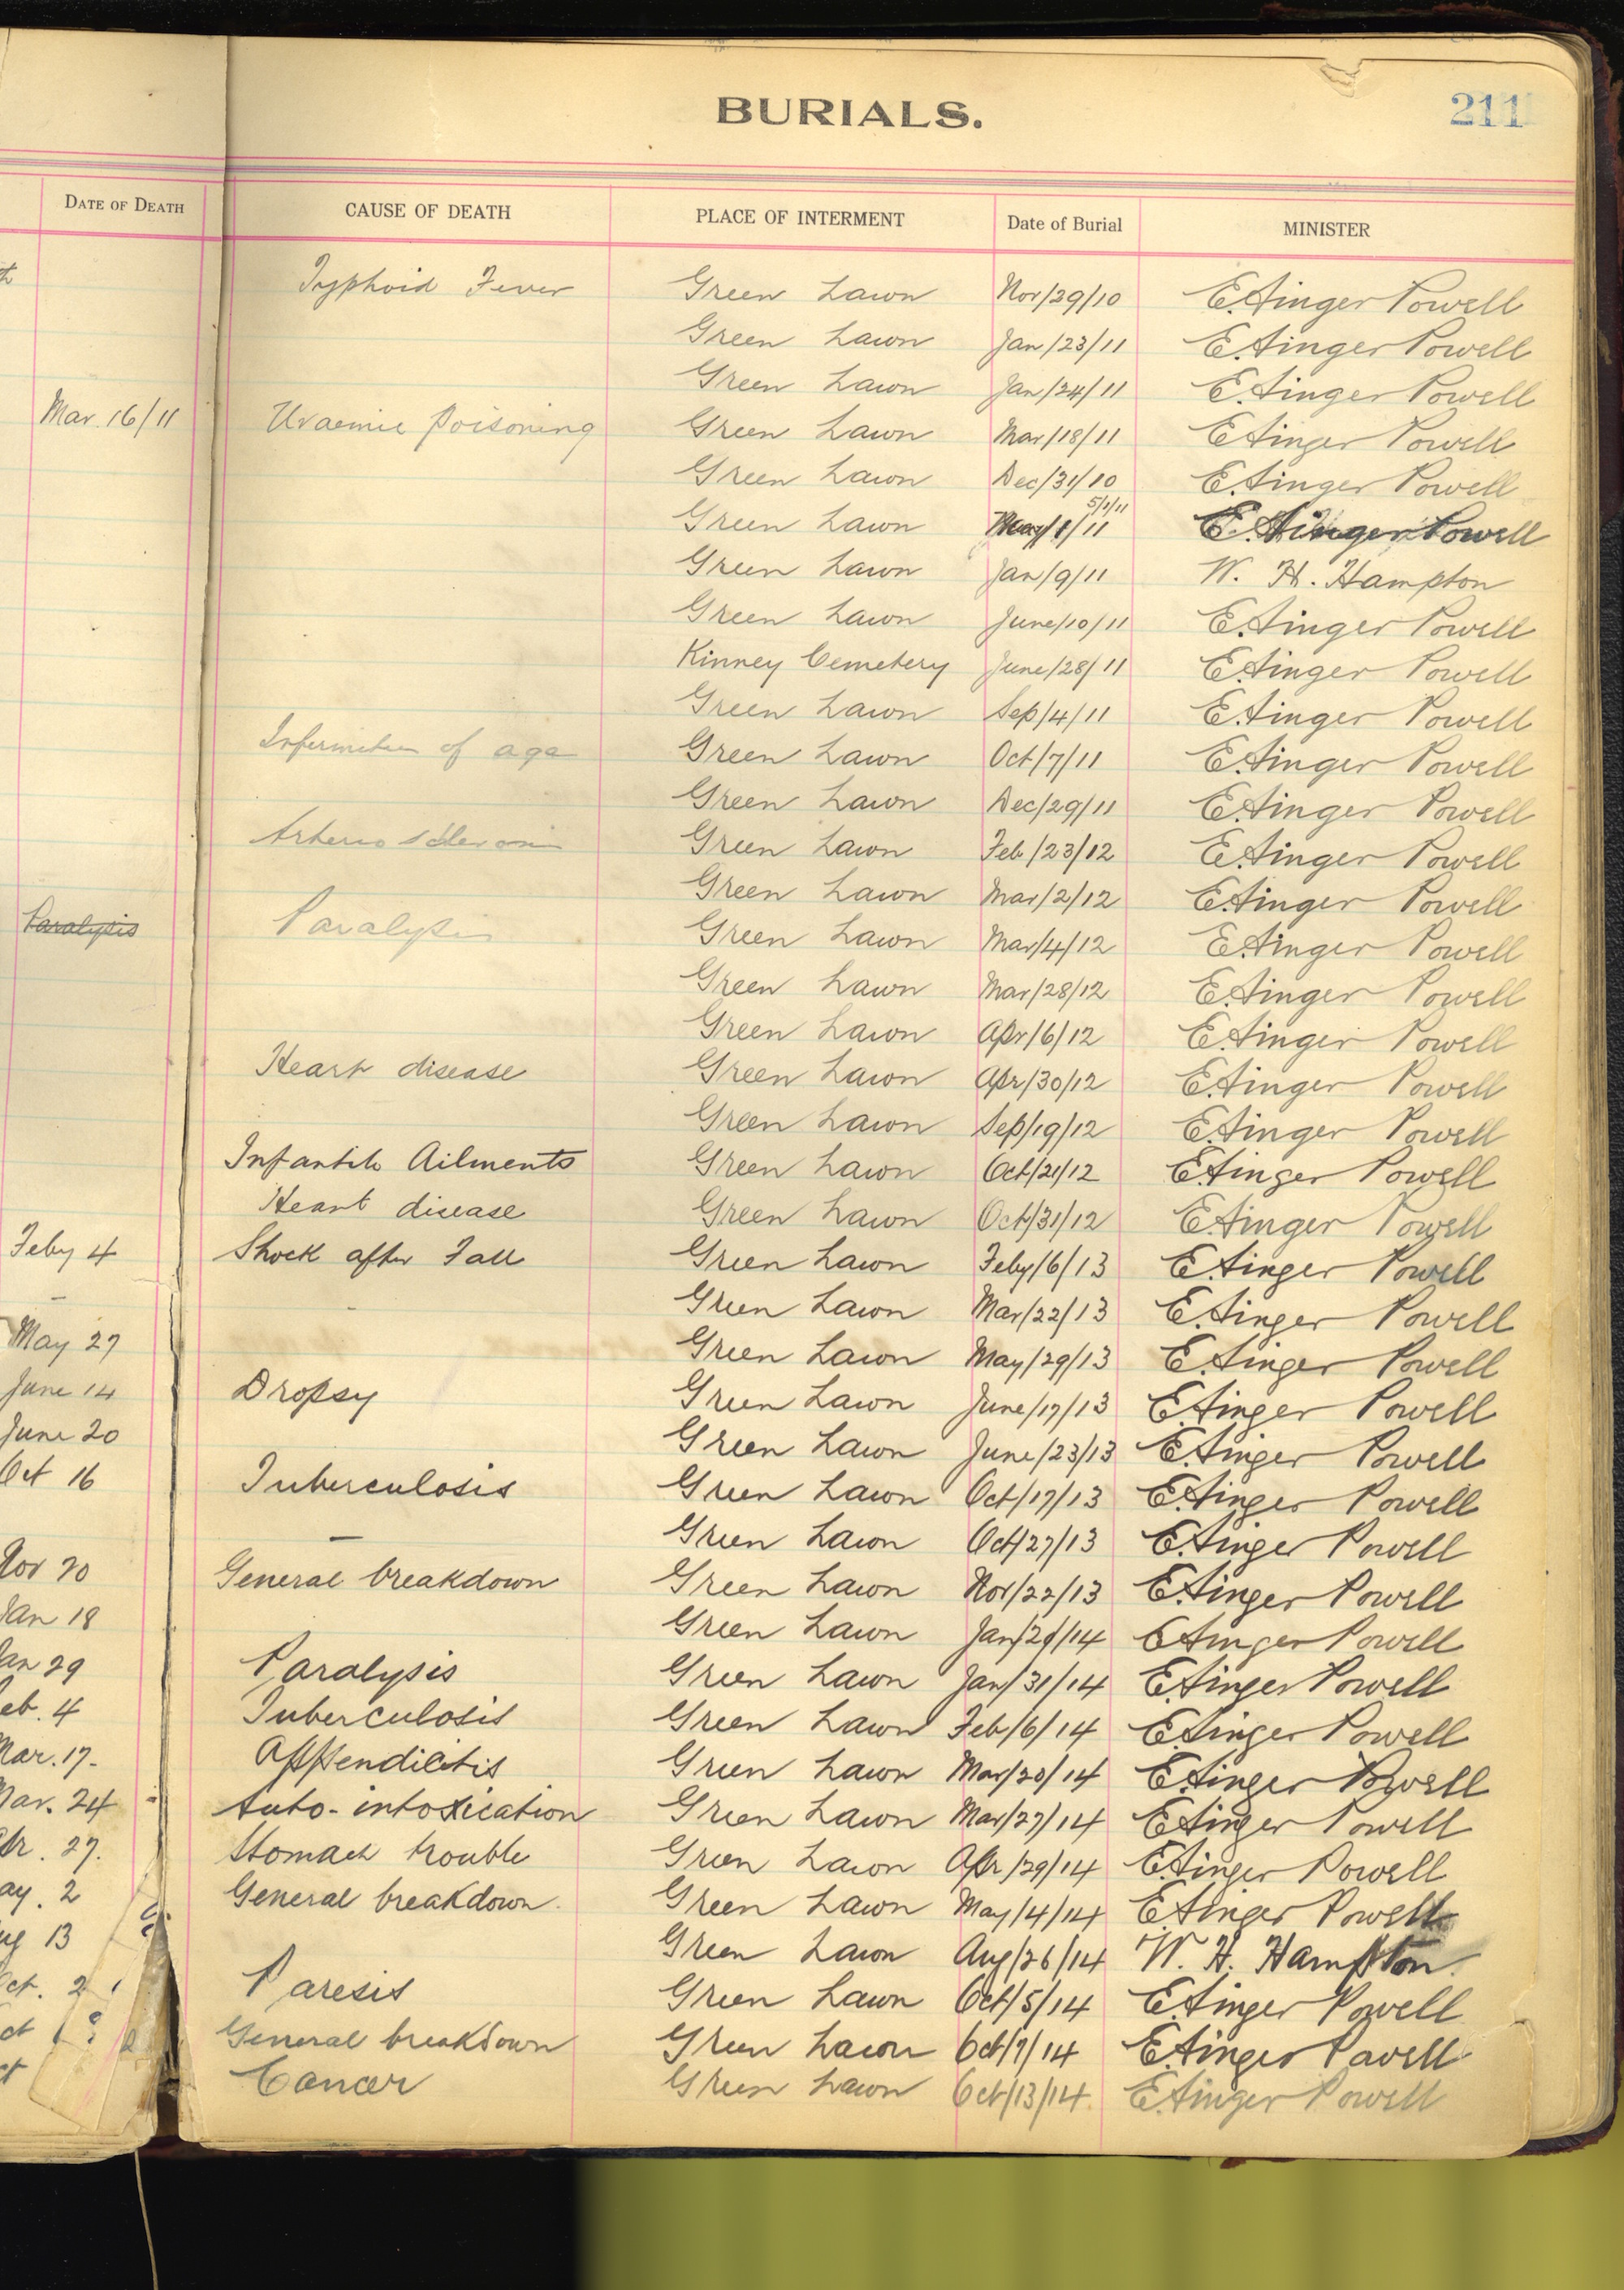 BURIALS.
211
DATE OF DEATH CAUSE OF DEATH PLACE OF INTERMENT Date of Burial MINISTER
Typhoid Fever Green Lawn Nov/29/10 E. Ainger Powell
Green Lawn Jan/23/11 E. Ainger Powell
Green Lawn Jan/24/11 E. Ainger Powell
Mar. 16/11 Uraemic Poisoning Green Lawn Mar/18/11 E Ainger Powell
Green Lawn Dec/31/10 E. Ainger Powell
5/1/11
Green Lawn May/1/11 E. Ainger Powell
Green Lawn Jan/9/11 W. H. Hampton
Green Lawn June/10/11 E. Ainger Powell
Kinney Cemetery June/28/11 E. Ainger Powell
Green Lawn Sep/4/11 E. Ainger Powell
Infirmities of age Green Lawn Oct/7/11 E. Ainger Powell
Green Lawn Dec/29/11 E. Ainger Powell
Arterio sclerosis Green Lawn Feb/23/12 E. Ainger Powell
Green Lawn Mar/2/12 E. Ainger Powell
Paralysis Paralysis Green Lawn Mar/4/12 E. Ainger Powell
Green Lawn Mar/28/12 E. Ainger Powell
Green Lawn Apr/6/12 E. Ainger Powell
Heart disease Green Lawn Apr/30/12 E. Ainger Powell
Green Lawn Sep/19/12 E. Ainger Powell
Infantile Ailments Green Lawn Oct/21/12 E. Ainger Powell
Heart disease Green Lawn Oct/31/12 E Ainger Powell
Feby 4 Shock after Fall Green Lawn Feby/6/13 E. Ainger Powell
Green Lawn Mar/22/13 E. Ainger Powell
May 27 Green Lawn May/29/13 E. Ainger Powell
June 14 Dropsy Green Lawn June/17/13 E. Ainger Powell
June 20 Green Lawn June/23/13 E. Ainger Powell
Oct 16 Tuberculosis Green Lawn Oct/17/13 E. Ainger Powell
Green Lawn Oct/27/13 E. Ainger Powell
Nov 20 General breakdown Green Lawn Nov/22/13 E. Ainger Powell
Jan 18 Green Lawn Jan/21/14 E Ainger Powell
Jan 29 Paralysis Green Lawn Jan/31/14 E. Ainger Powell
eb. 4 Tuberculosis Green Lawn Feb/6/14 E. Ainger Powell
Mar. 17. Appendicitis Green Lawn Mar/20/14 E. Ainger Powell
Mar. 24 Auto-intoxication Green Lawn Mar/27/14 E Ainger Powell
pr. 27. Stomach trouble Green Lawn Apr/29/14 E. Ainger Powell
ay. 2 General breakdown. Green Lawn May/4/14 E. Ainger Powell
ug 13 Green Lawn Aug/26/14 W. H. Hampton.
Oct. 2 Paresis Green Lawn Oct/5/14 E. Ainger Powell
General breakdown Green Lawn Oct/7/14 E. Ainger Powell
Cancer Green Lawn Oct/13/14. E. Ainger Powell